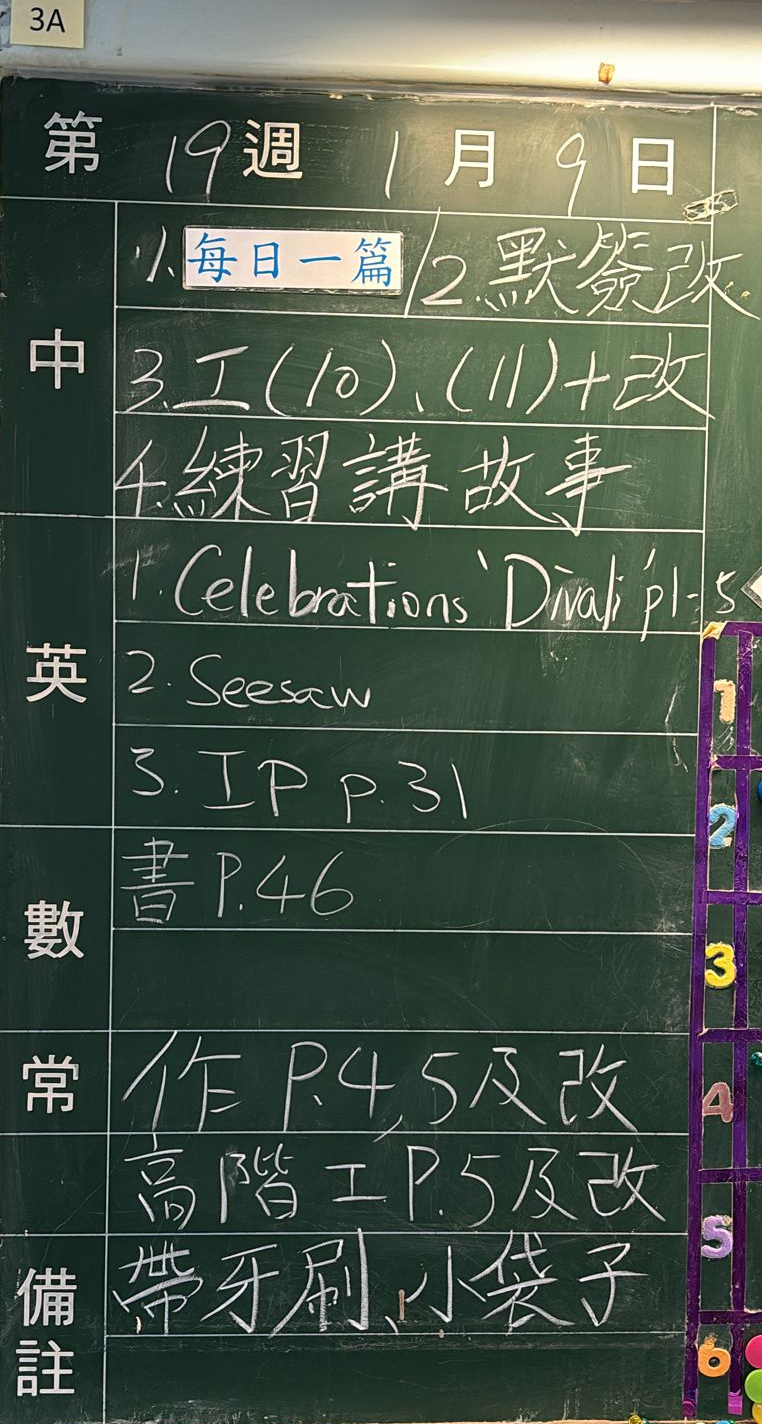 3A
第19週 1月9日
中
1. 每日一篇 / 2. 默簽改
3. 工(10)、(11)+改
4. 練習講故事
英
1. Celebrations 'Divali' p1-5
2. Seesaw
3. IP p.31
數
書 P.46
常
作 P.4,5及改
高階工 P.5及改
備註
帶牙刷、小袋子
1
2
3
4
5
6